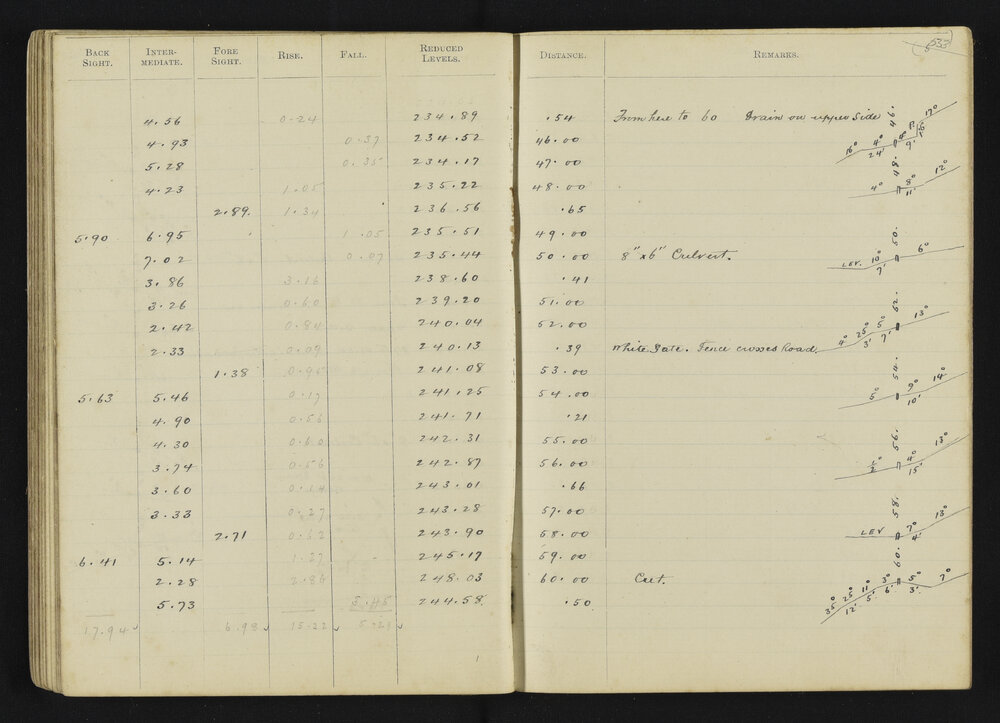 BACK SIGHT. INTER-MEDIATE. FORE SIGHT. RISE. FALL. REDUCED LEVELS. DISTANCE. REMARKS.
4.56 0.24 234.89 .54 From here to 60 Drain on upper side
4.93 0.37 234.52 46.00
5.28 0.35 234.17 47.00
4.23 1.05 235.22 48.00
2.89 1.34 236.56 .65
5.90 6.95 1.05 235.51 49.00
7.02 0.07 235.44 50.00 8" x 6" Culvert.
3.86 3.16 238.60 .41
3.26 0.60 239.20 51.00
2.42 0.84 240.04 52.00
2.33 0.09 240.13 .39 White Gate. Fence crosses Road.
1.38 0.95 241.08 53.00
5.63 5.46 0.17 241.25 54.00
4.90 0.56 241.71 .21
4.30 0.60 242.31 55.00
3.74 0.56 242.87 56.00
3.60 0.14 243.01 .66
3.33 0.27 243.28 57.00
2.71 0.62 243.90 58.00
6.41 5.14 1.27 245.17 59.00
2.28 2.86 248.03 60.00 Cut.
5.73 3.45 244.58 .50
17.94 6.98 15.22
46. 16° 4° 24' 9' 16' 17°
48. 4° 8° 11' 12°
50. LEV. 10° 7' 6°
52. 4° 25° 3' 5° 7' 13°
54. 5° 9° 10' 14°
56. ½° 4° 15' 13°
58. LEV 7° 4' 13°
60. 35° 25° 12' 11° 5' 3° 6' 5° 3' 7°